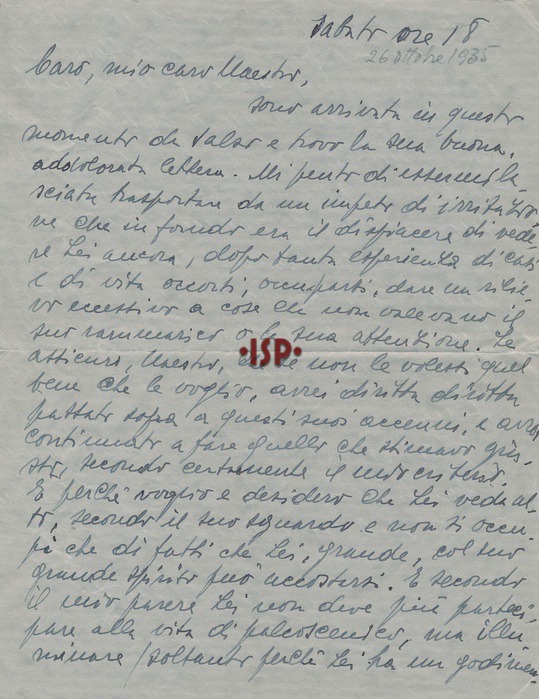 Sabato ore 18
26 ottobre 1935
Caro, mio caro Maestro,
sono arrivata in questo
momento da Salso e trovo la sua buona,
addolorata lettera. Mi pento di essermi la-
sciata trasportare da un impeto di irritazio
ne che in fondo era il dispiacere di vede-
re Lei ancora, dopo tanta esperienza di casi
e di vita occorsi, occuparsi, dare un rilie-
vo eccessivo a cose che non valevano il
suo rammarico o la sua attenzione. Le
assicuro, Maestro, che se non le volessi quel
bene che le voglio, avrei diritta diritta
passato sopra a questi suoi accenni, e avrei
continuato a fare quello che stimavo giu-
sto, secondo certamente il mio criterio.
E perchè voglio e desidero che Lei veda al-
to, secondo il suo sguardo e non si occu-
pi che di fatti che Lei, grande, col suo
grande spirito può accostarsi. E secondo
il mio parere Lei non deve più parteci-
pare alla vita di palcoscenico, ma illu
minare / soltanto perchè Lei ha un godimen-
•ISP•